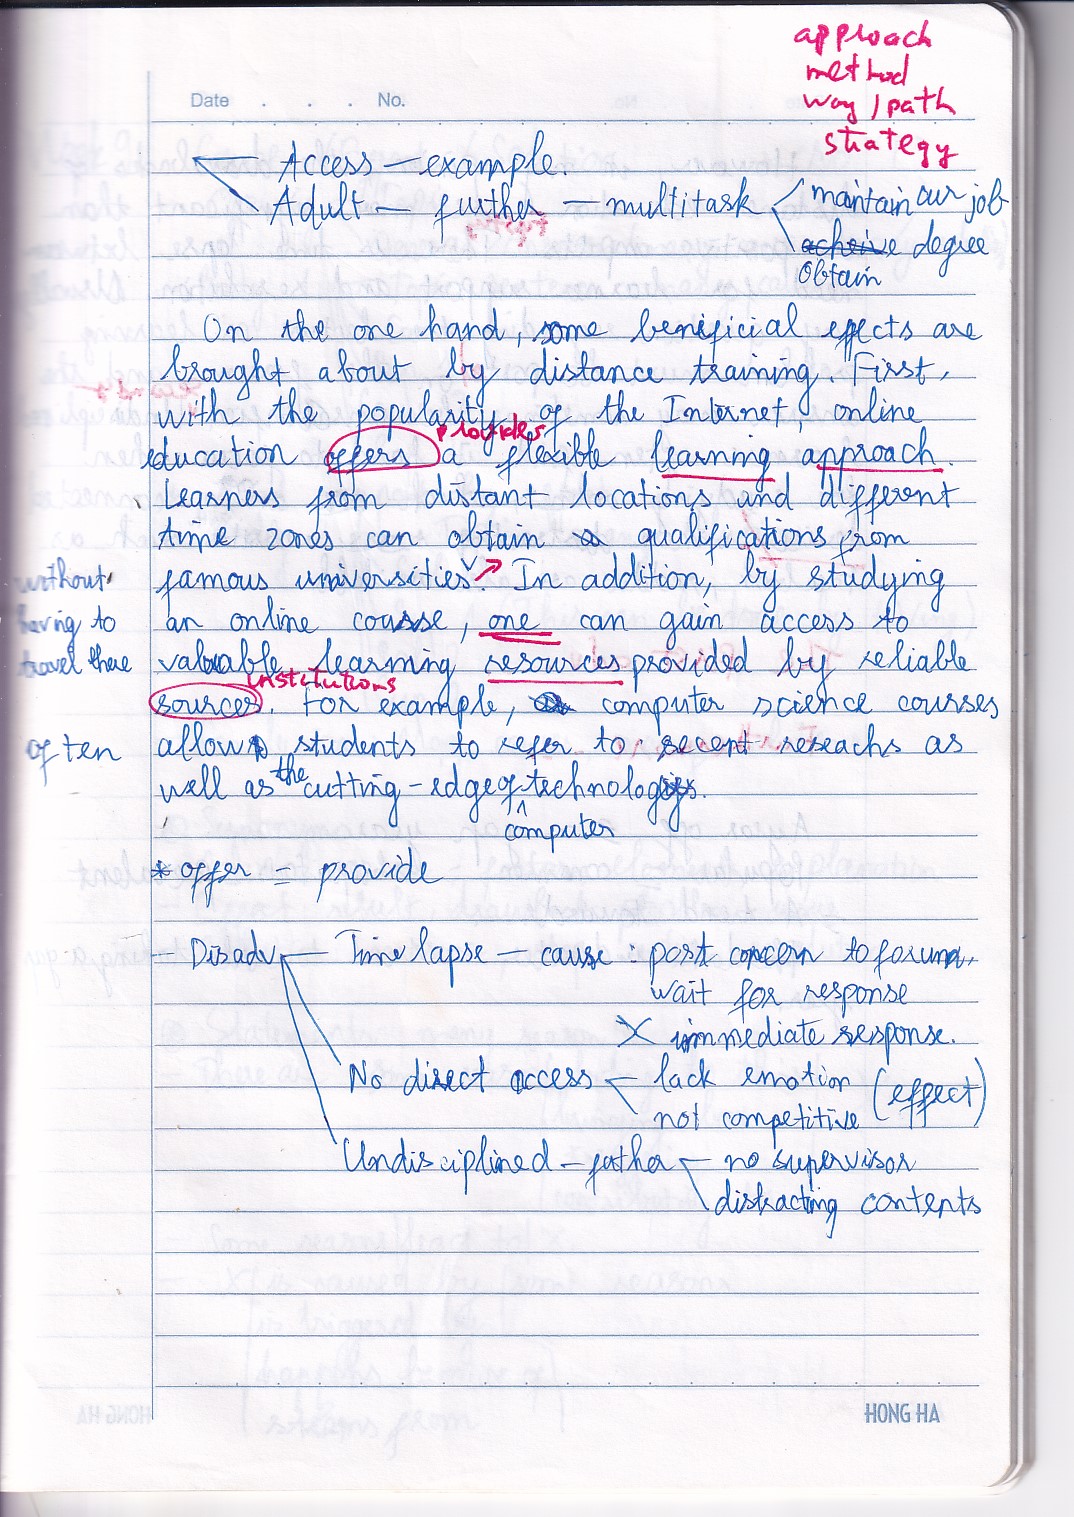 approach
method
way / path
strategy
Date . . . No.
Access — example.
Adult — further — multitask maintain our job
acheive degree
obtain
On the one hand, some benificial effects are
brought about by distance training. First,
with the popularity of the Internet, online
provides
education offers a flexible learning approach.
Learners from distant locations and different
time zones can obtain qualifications from
famous universities. In addition, by studying
without
having to
travel there
an online course, one can gain access to
valuable learning resources provided by reliable
institutions
sources. For example, computer science courses
often
allow students to refer to recent reseachs as
well as the cutting-edge of technologies.
computer
* offer = provide
Disadv — Time lapse — cause : post concern to forum,
wait for response
X immediate response.
No direct access lack emotion (effect)
not competitive
Undisciplined — further no supervisor
distracting contents
HONG HA